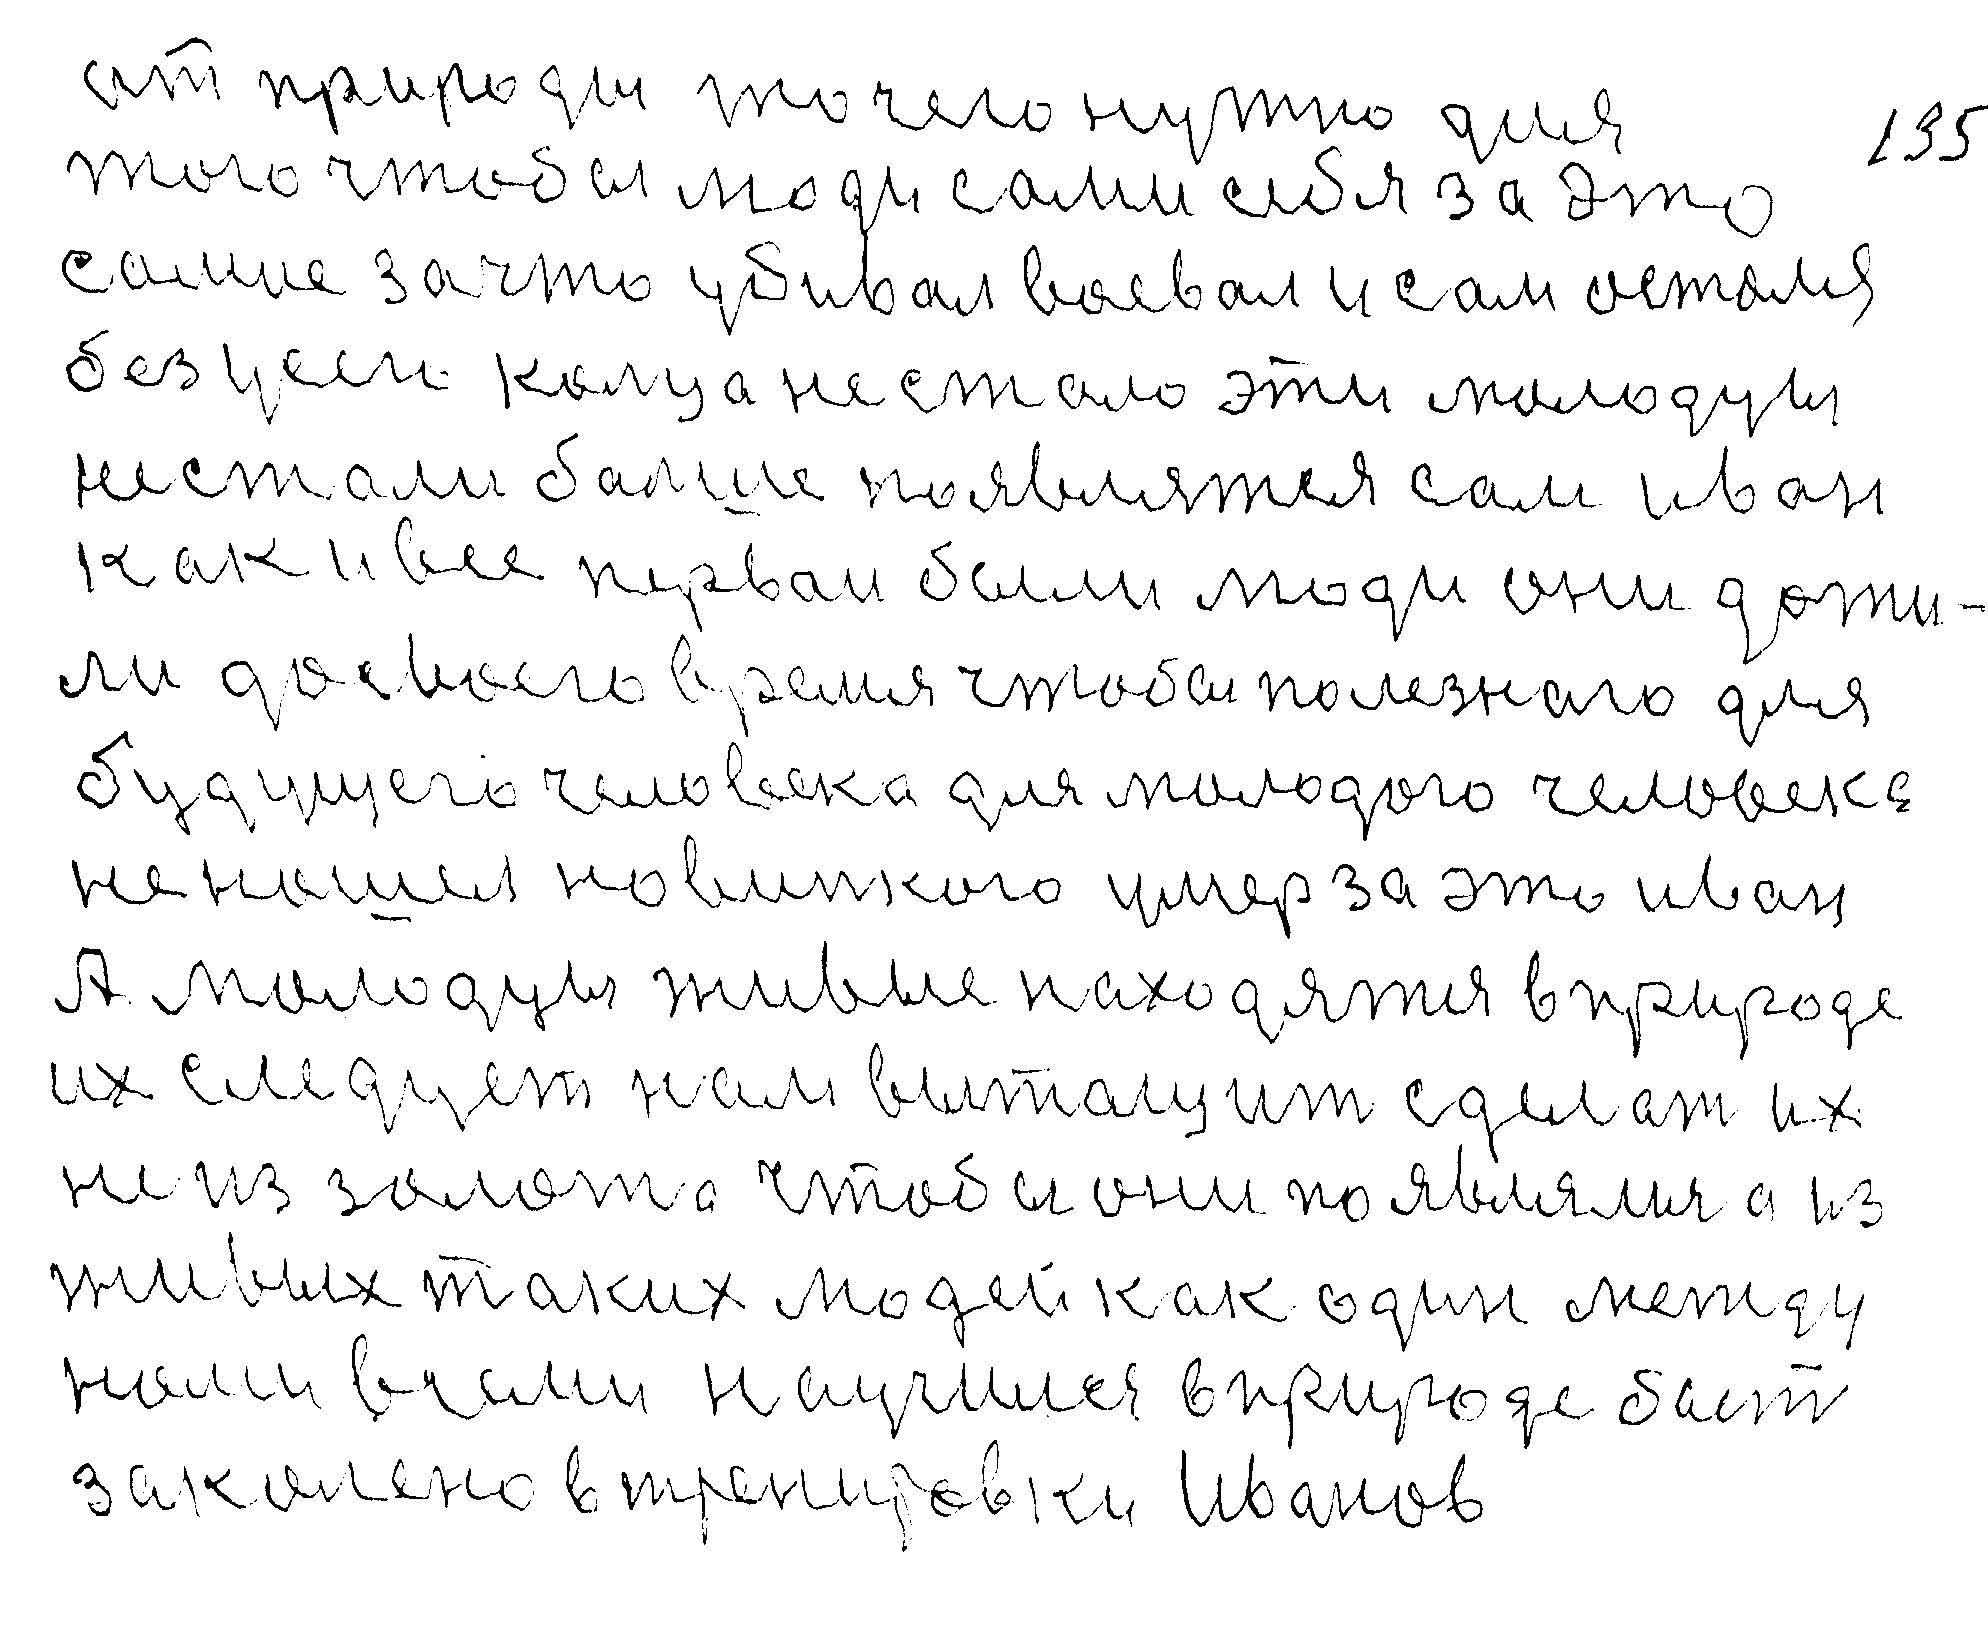 от природы то чего нужно для
135
того чтобы люди сами себя за это
самие за что убивал воевал и сам остался
без усего колца не стало эти молодцы
не стали болше появлятся сам иван
как и все первои были люди они дожи-
ли до своего время чтобы полезнаго для
будущего человека для молодого человека
не нашел новинкого умер за это иван
А молодцы живые находятся в природе
их следует нам вытащит сделат их
не из золота чтобы они появлялися а из
живых таких людей как один между
нами всеми научился в природе быт
заколено в тренировки Иванов